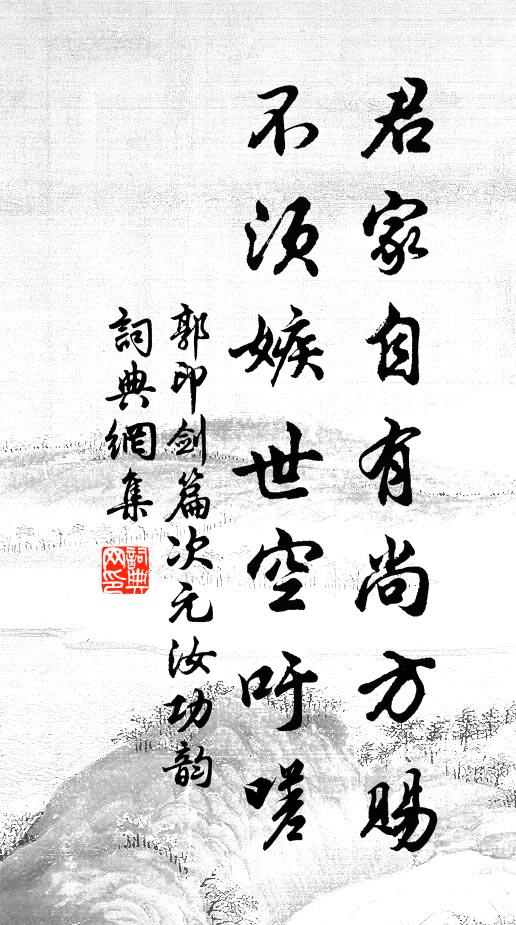 君家自有尚方賜
不須嫉世空吁嗟
郭印剑篇次元汝功韵
詞典網集
詞典网印